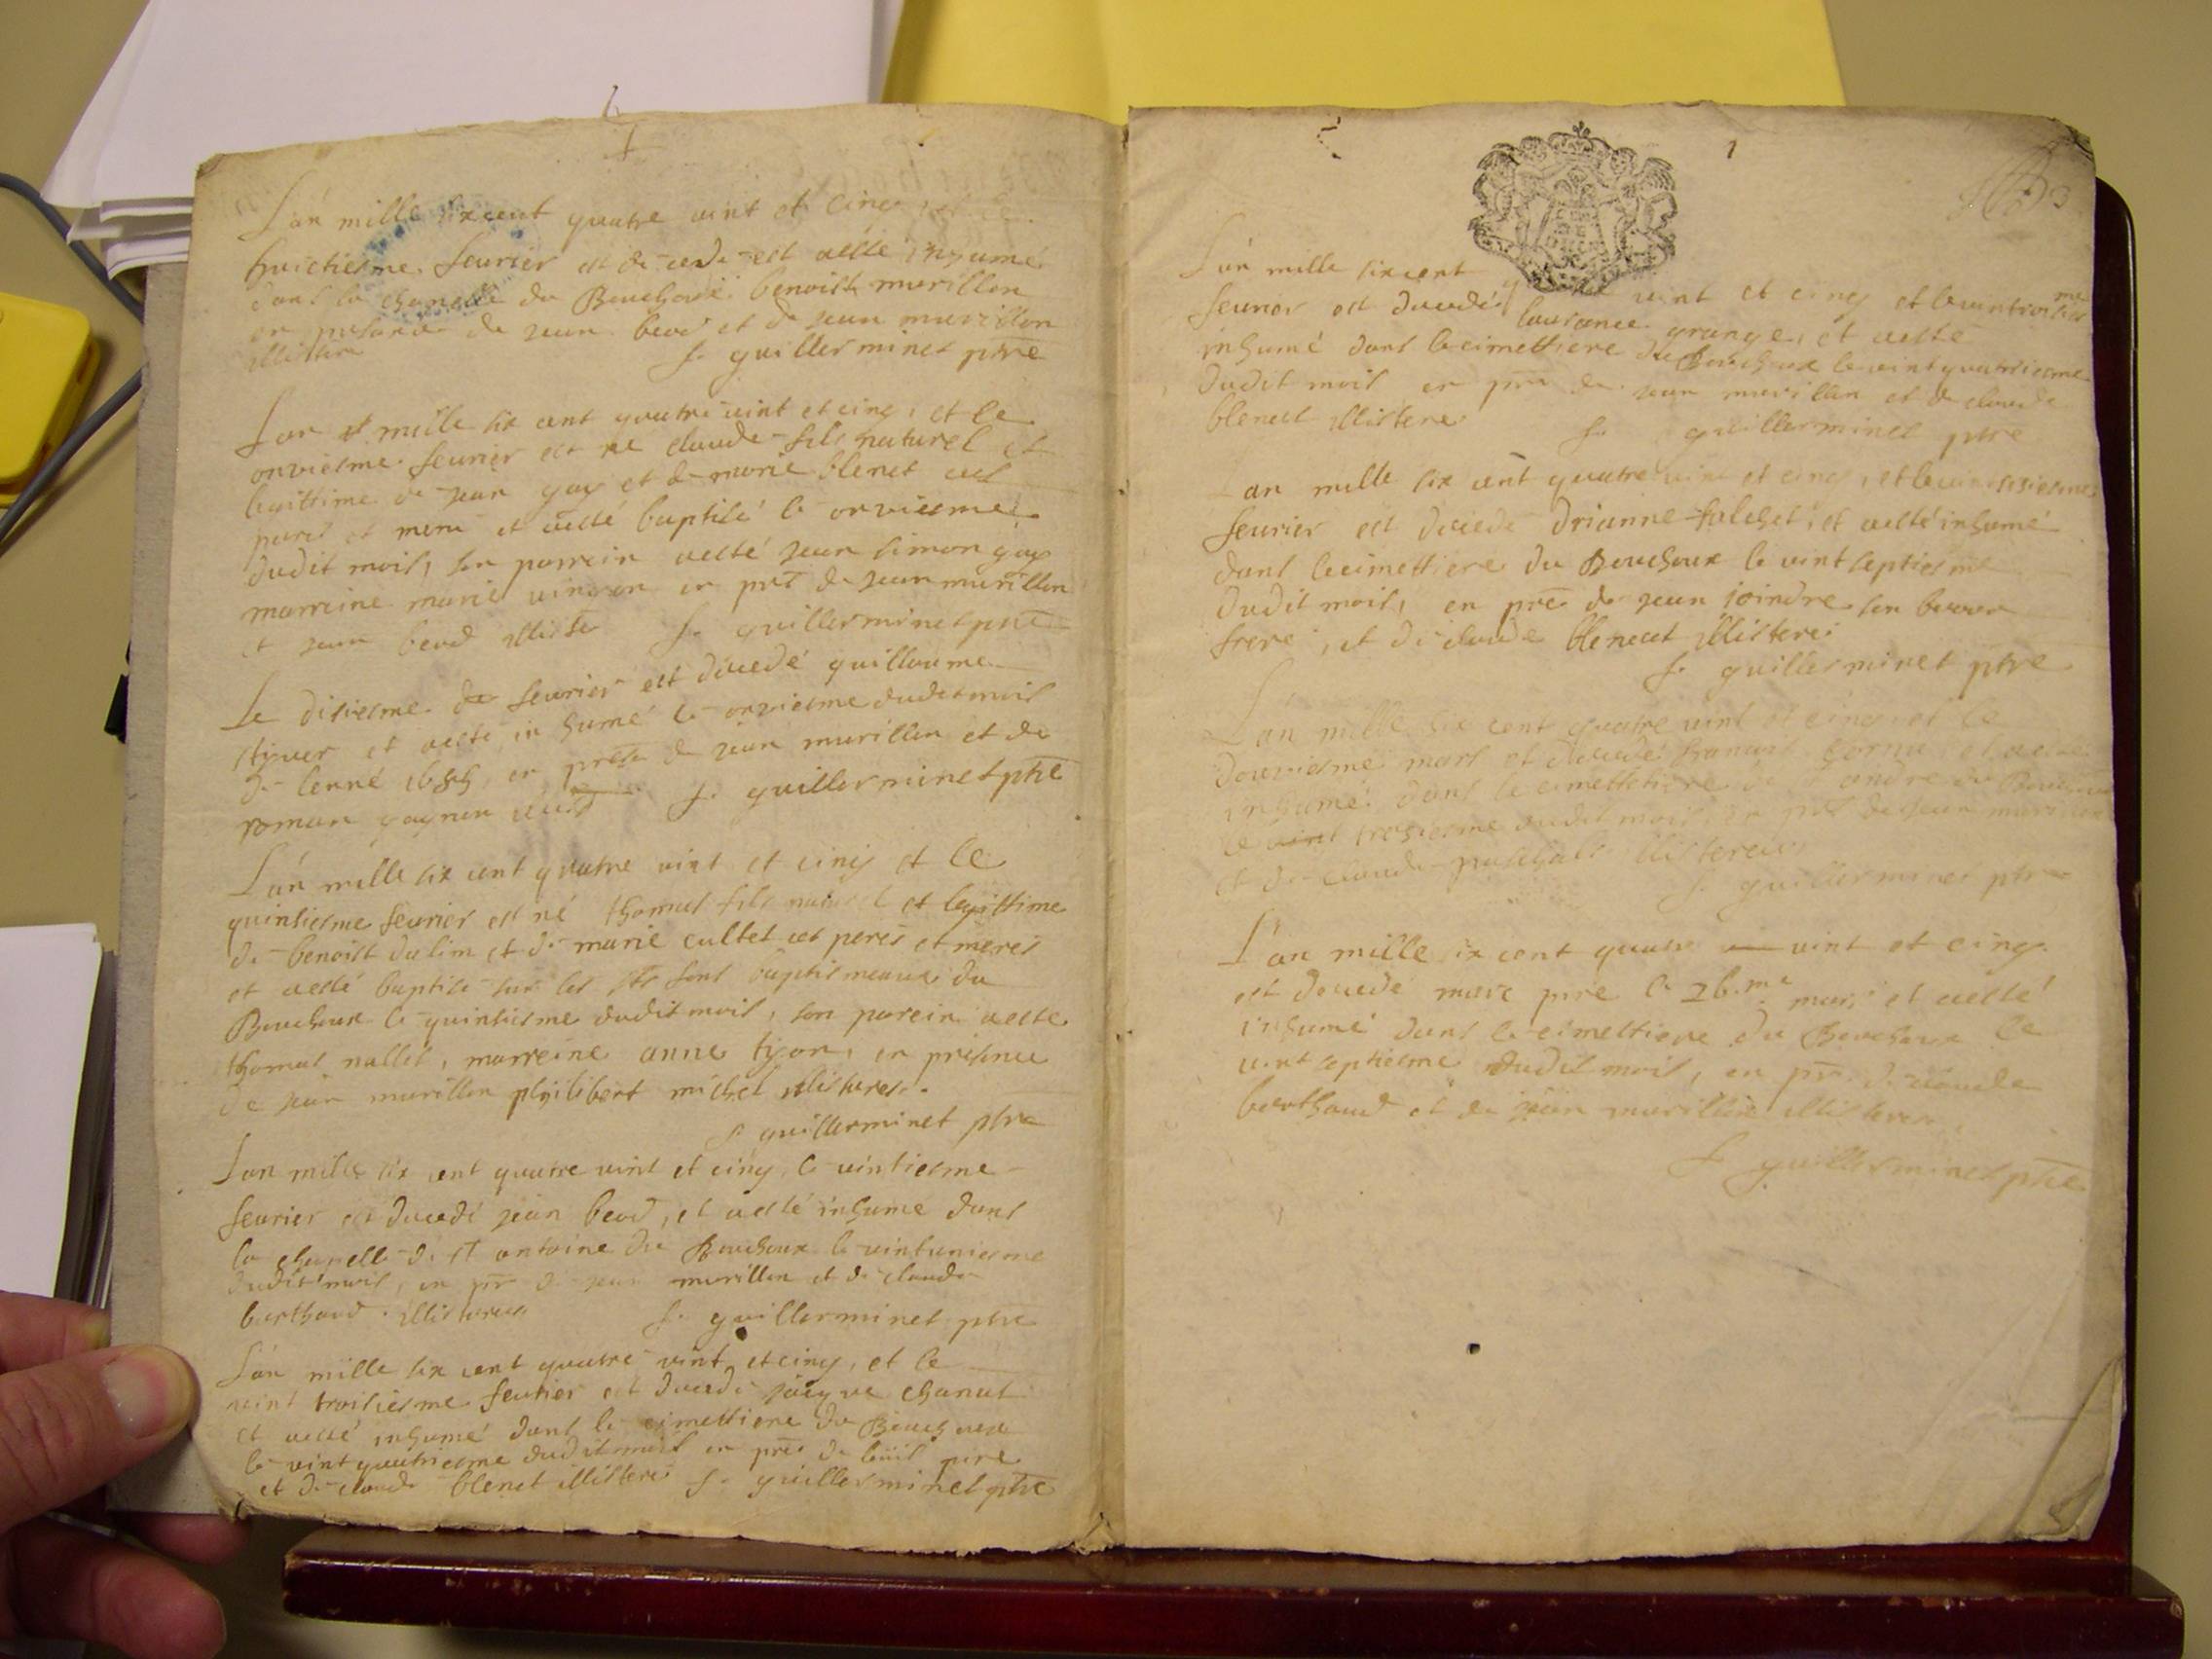 L'an mille six cent quatre vint et cinq et le
huictiesme feurier est decede est aesté inhumé
dans la chapelle du Bouchoux benoist murillon
en presance de jean beod et de jean murillon
illistere f. guillerminet ptre
L'an mille six cent quatre vint et cinq, et le
onziesme feurier est né claude fils naturel et
legittime de jean gay et de marie blenet ces
peres et mere et aesté baptisé le onziesme
dudit mois, son parrein aesté jean simon gay
marreine marie en pnt de jean murillon
et jean beod illistere f. guillerminet ptre
Le disiesme de feurier est decedé guillaume
et aesté inhumé le onziesme dudit mois
de lenné 1685, en presce de jean murillon et de
roman gagnon f. guillerminet ptre
L'an mille six cent quatre vint et cinq et le
quinsiesme feurier est né thomas fils naturel et legittime
de benoist dulim et de marie cultet ces peres et meres
et aesté baptisé sur les sts fons baptismeaux du
Bouchoux le quinsiesme dudit mois, son parein aesté
thomas nallet, marreine anne tyon, en presence
de jean murillon philibert michel illisteres.
f guillerminet ptre
L'an mille six cent quatre vint et cinq, le vintiesme
feurier est decedé jean beod, et aesté inhumé dans
la chapelle de st antoine du Bouchoux le vintuniesme
dudit mois, en pr de jean murillon et de claude
berthaud illisteres f. guillerminet ptre
L'an mille six cent quatre vint et cinq, et le
vint troisiesme feurier est decedé jacque chanal
et aesté inhumé dans le cimettiere du Bouchoux
le vint quatriesme dudit mois en pre de louis pire
et de claude blenet illistere f. guillerminet ptre
1
L'an mille six cent quatre vint et cinq et le vintroisiesme
feurier est decedé laurance grange, et aesté
inhumé dans le cimettiere du Bouchoux le vint quatriesme
dudit mois en pre de jean murillon et de claude
blenect illistere f. guillerminet ptre
L'an mille six cent quatre vint et cinq, et le vint sisiesme
feurier est decedé drianne falchet, et aesté inhumé
dans le cimettiere du Bouchoux le vint septiesme
dudit mois, en pre de jean joindre son beaux
frere, et de claude blenect illistere
f. guillerminet ptre
L'an mille six cent quatre vint et cinq, et le
douziesme mars et decedé et aesté
inhumé dans le cimettetiere de st andre du Bouchoux
le vint tresiesme dudit mois, en pnt de jean murillon
et de claude illisteres
f guillerminet ptre
L'an mille six cent quatre vint et cinq
est decedé marc pire le 26.me mars et aesté
inhumé dans le cimettiere du Bouchoux le
vint septiesme dudit mois, en pr de claude
berthaud et de jean murillon illisteres
f guillerminet ptre